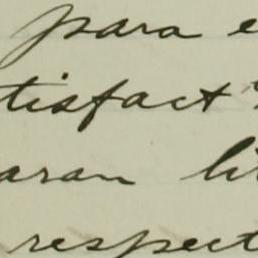 para e
tisfact
aran li
respect